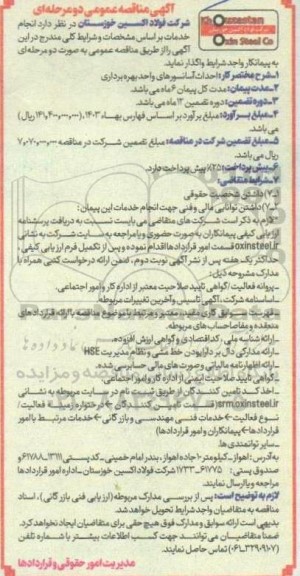 آگهی مناقصه عمومی دو مرحله‌ای
Khouzestan
Oxin Steel Co
شرکت فولاد اکسین خوزستان در نظر دارد انجام
خدمات بر اساس مشخصات و شرایط کلی مندرج در این
آگهی را از طریق مناقصه عمومی به صورت دو مرحله‌ای
به پیمانکار واجد شرایط واگذار نماید.
۱-شرح مختصر کار: احداث آسانسورهای واحد بهره برداری
۲-مدت پیمان: مدت کل پیمان ۶ ماه می باشد.
۳-دوره تضمین: دوره تضمین ۱۲ ماه می باشد.
۴-مبلغ برآورد: مبلغ برآورد بر اساس فهارس بهاء ۱۴۰۳، ۱۴۱,۴۰۰,۰۰۰,۰۰۰ ریال
می باشد.
۵-مبلغ تضمین شرکت در مناقصه: مبلغ تضمین شرکت در مناقصه ۷,۰۷۰,۰۰۰,۰۰۰
ریال می باشد.
۶-پیش پرداخت: ۲۵٪ پیش پرداخت دارد.
۷-شرایط متقاضی:
۷-۱) داشتن شخصیت حقوقی
۷-۲) داشتن توانایی مالی و فنی جهت انجام خدمات این پیمان:
لازم به ذکر است شرکت های متقاضی می بایست نسبت به دریافت پرسشنامه
ارزیابی کیفی پیمانکاران به صورت حضوری و یا مراجعه به سایت شرکت به نشانی
oxinsteel.ir قسمت امور قراردادها اقدام نموده و پس از تکمیل فرم ارزیابی کیفی،
حداکثر یک هفته پس از نشر آگهی نوبت دوم، ضمن ارائه درخواست کتبی همراه با
مدارک مشروحه ذیل:
-پروانه فعالیت / گواهی تایید صلاحیت معتبر از اداره کار و امور اجتماعی.
-اساسنامه شرکت، آگهی تأسیس و آخرین تغییرات مربوطه.
-فهرست و سوابق کاری مفید، معتبر و مرتبط با موضوع مناقصه با ارائه قراردادهای
منعقده و مفاصا حساب های مربوطه.
-ارائه شناسه ملی، کد اقتصادی و گواهی ارزش افزوده.
-ارائه مدارکی دال بر دارا بودن خط مشی و نظام مدیریت HSE
-ارائه اظهارنامه مالیاتی و صورت های مالی حسابرسی شده.
-گواهی تایید صلاحیت ایمنی از اداره کار و امور اجتماعی.
-اخذ کد تامین کنندگان از طریق ثبت نام در سایت مربوطه به نشانی
srm.oxinsteel.ir
نوع فعالیت خدمات فنی مهندسی و بازرگانی خدمات مرتبط با امور
قراردادها پیمانکاران و امور قراردادها)
-سایر توانمندی ها.
به آدرس: اهواز-کیلومتر ۱۰ جاده اهواز، بندر امام خمینی-کد پستی ۱۳۱۱۱-۶۱۷۸۸ و
صندوق پستی: ۶۱۷۷۵-۱۷۳۳ شرکت فولاد اکسین خوزستان-اداره امور قراردادها
مراجعه و یا ارسال نمایند.
لازم به توضیح است: پس از بررسی مدارک مربوطه (ارزیابی فنی بازرگانی)، اسناد
مناقصه به متقاضیان واجد شرایط تحویل خواهد شد.
بدیهی است ارائه سوابق و مدارک فوق هیچ حقی برای متقاضیان ایجاد نخواهد کرد.
ضمنا متقاضیان می توانند جهت کسب اطلاعات بیشتر با شماره تلفن
(۰۶۱-۳۲۹۰۹۱۰۷) تماس حاصل نمایند.
مدیریت امور حقوقی و قراردادها